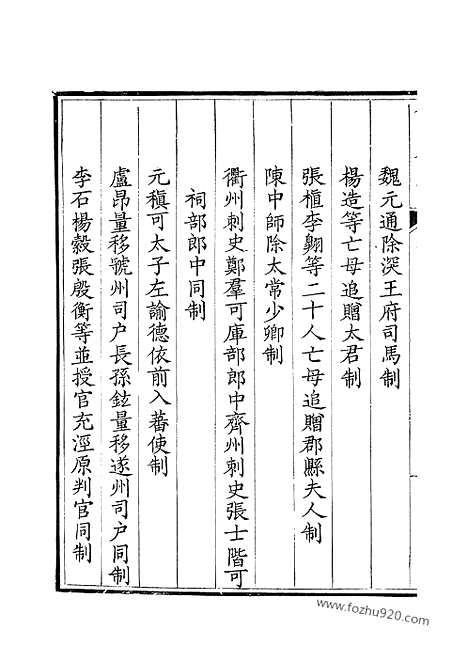 魏元通除深王府司馬制
楊造等亡母追贈太君制
張植李翺等二十人亡母追贈郡縣夫人制
陳中師除太常少卿制
衢州刺史鄭羣可庫部郎中齊州刺史張士階可
祠部郎中同制
元稹可太子左諭德依前入蕃使制
盧昂量移虢州司户長孫鉉量移遂州司户同制
李石楊縠張殷衡等並授官充涇原判官同制
www.fozhu920.com